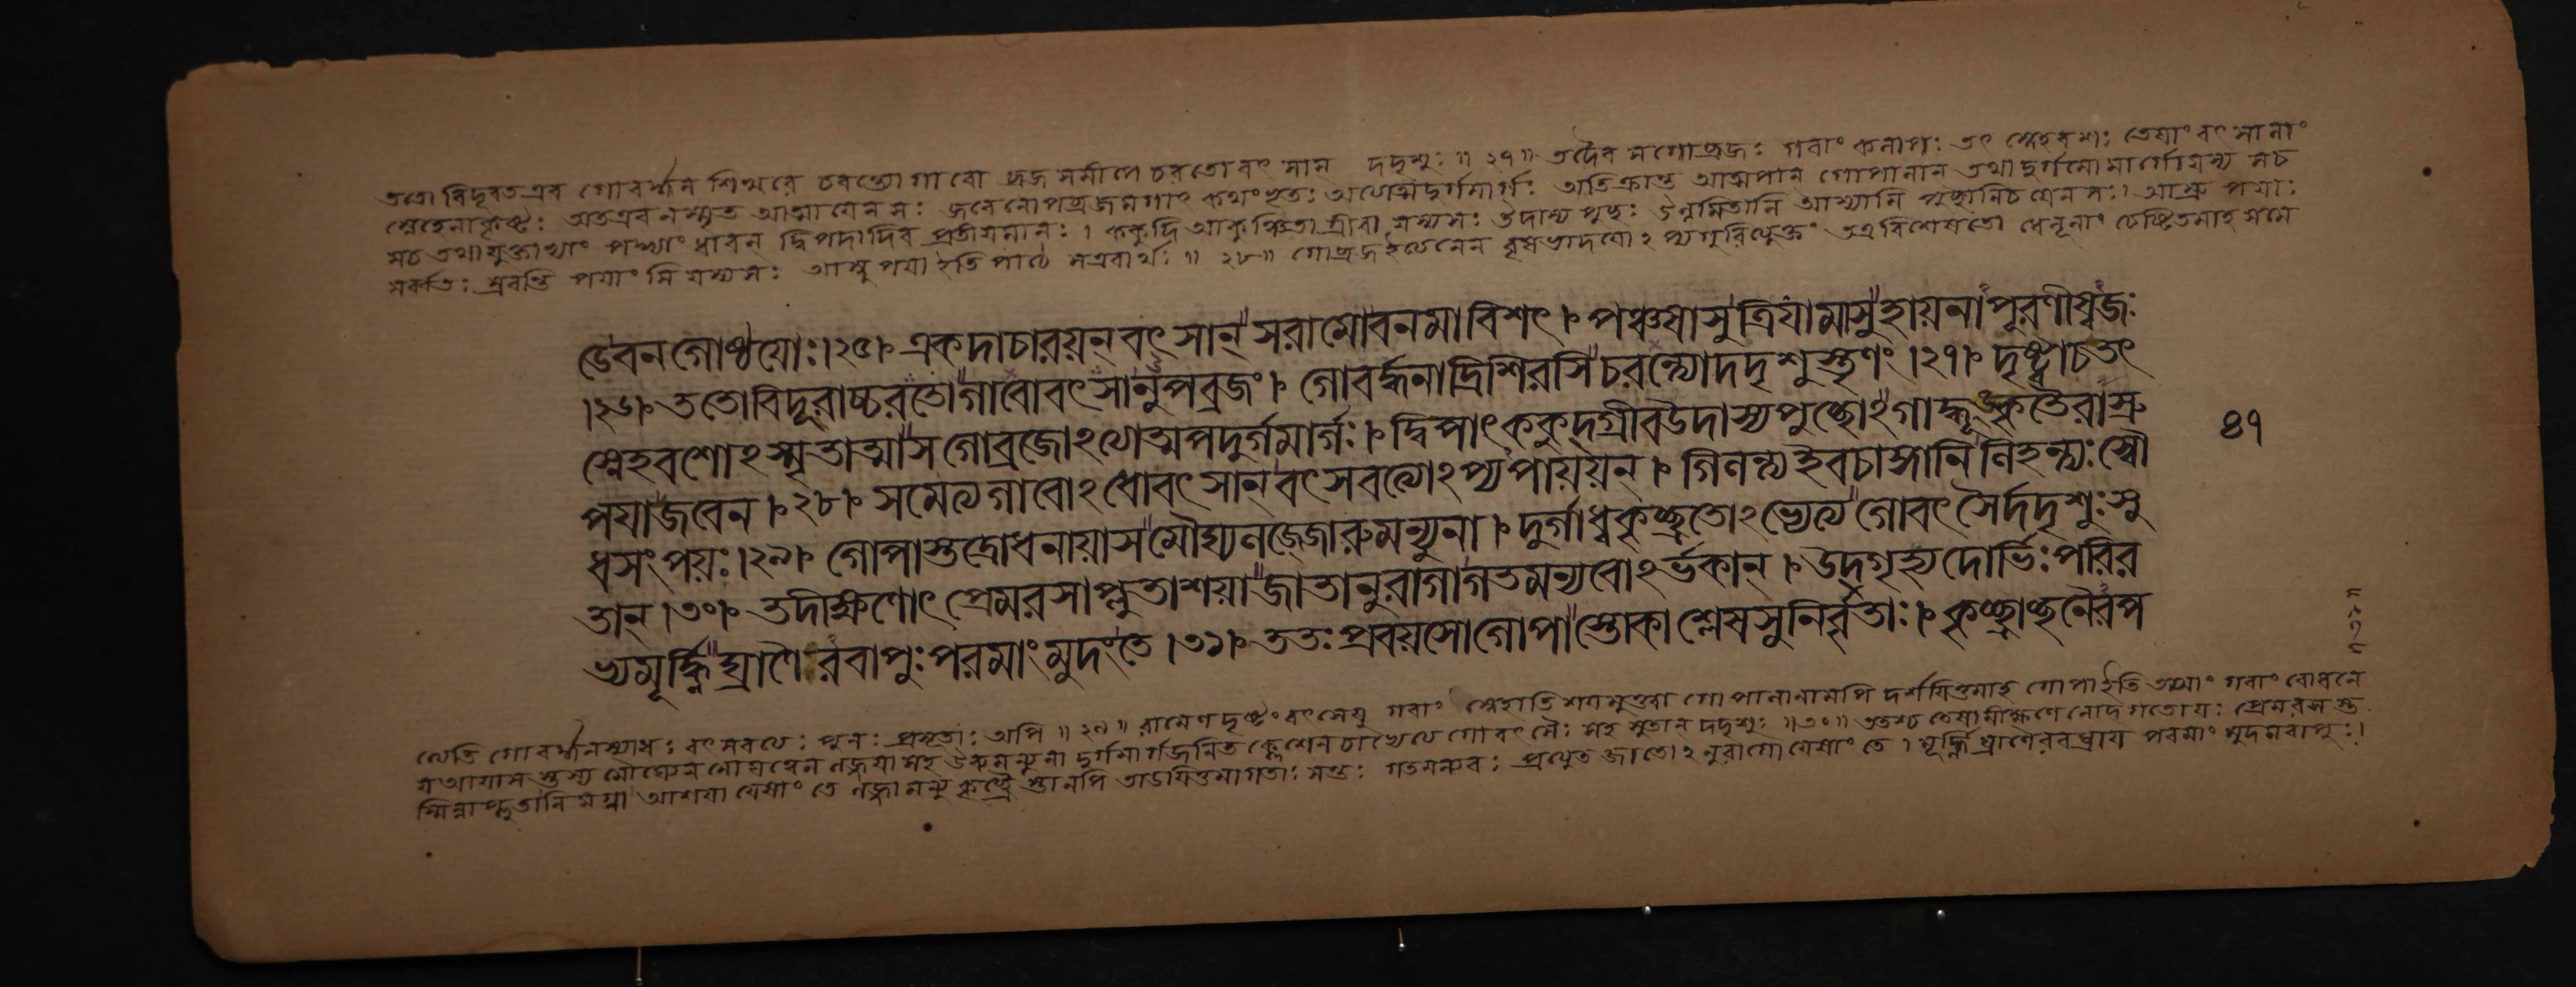 ততো বিদূরত এব গোবর্দ্ধন শিখরে চরন্ত্যো গাবো ব্রজ সমীপে চরতো বৎ সান দদৃশুঃ ॥ ২৭ ॥ তদৈব সগোব্রজঃ গবাং
স্নেহেনাকৃষ্টঃ অতএব নস্মৃত আত্মা যেন সঃ অতিক্রান্ত আত্মপান গোপানান তথা দুর্গমো মার্গো যস্য সচ
সচ তথা যুক্তাভ্যাং পদ্ভ্যাং ধাবন দ্বিপদাদিব প্রতীয়মানঃ । ককুদি আকুঞ্চিতা গ্রীবা যস্য সঃ উদাস্য পুচ্ছঃ উন্নমিতানি আস্যানি পুচ্ছানিচ যেন সঃ।
সর্ব্বতঃ স্রবন্তি পয়াংসি যস্য সঃ আস্নুপয়া ইতি পাঠে সএবার্থঃ ॥ ২৮ ॥ ধেনূনাং চেষ্টিতমাহ সমে
ডেবনগোষ্ঠয়োঃ।২৫।- একদাচারয়ন্ বৎসান্ সরামোবনমাবিশৎ।- পঞ্চষাসুত্রিযামাসুহায়নাপূরণীষ্বজঃ
।২৬।- ততোবিদূরাচ্চরতোগাবোবৎসানুপব্রজং।- গোবর্দ্ধনাদ্রিশিরসিচরন্ত্যোদদৃশুস্তৃণং।২৭।- দৃষ্ট্বাচতৎ
স্নেহবশোঽস্মৃতাত্মাসগোব্রজোঽথোত্মপদুর্গমার্গঃ।- দ্বিপাৎককুদ্গ্রীবউদাস্যপুচ্ছোঽগাদ্ধূংকৃতৈরাস্রু
পয়াজবেন।-২৮।- সমেত্যগাবোঽধোবৎসান্বৎসবত্যোঽপ্যপায়য়ন্।- গিলন্ত্যইবচাঙ্গানিলিহন্ত্যঃস্বৌ
ধসংপয়ঃ।২৯।- গোপাস্তদ্রোধনায়াসমৌঘ্যলজ্জোরুমন্যুনা।- দুর্গাধ্বকৃচ্ছ্রতোঽভ্যেত্যগোবৎসৈর্দদৃশুঃসু
তান্।৩০।- তদীক্ষণোৎপ্রেমরসাপ্লুতাশয়াজাতানুরাগাগতমন্যবোঽর্ভকান্।- উদ্গৃহ্যদোর্ভিঃপরির
ভ্যমূর্দ্ধ্নিঘ্রাণৈরবাপুঃপরমাংমুদংতে।৩১।- ততঃপ্রবয়সোগোপাস্তোকাশ্লেষসুনির্বৃতাঃ।- কৃচ্ছ্রাচ্ছনৈরপ
৪৭
ত্যেতি গোবর্দ্ধনস্যাধঃ বৎসবত্যঃ পুনঃ প্রসূতাঃ অপি ॥ ২৯ ॥ গবাং স্নেহাতিশয়মুক্ত্বা গোপানানামপি দর্শয়িতুমাহ গোপা ইতি তাসাং গবাং রোধনে
য আয়াস স্তস্য মৌঘ্যেন লজ্জয়া সহ উরুমন্যুনা দুর্গমার্গজনিত ক্লেশেন চাভ্যেত্য গোবৎসৈঃ সহ সুতান দদৃশুঃ ॥৩০॥ ততশ্চ তেষামীক্ষণে নোদ গতোযঃ প্রেমরস স্ত
স্মিন্নাপ্লুতানি মগ্না আশয়া যেষাং তে তাডয়িতুমাগতাঃ সন্তঃ গতমন্যবঃ প্রত্যুত জাতোঽনুরাগো যেষাং তে । মূর্দ্ধ্নি ঘ্রাণৈরবঘ্রায় পরমাং মুদমবাপুঃ।